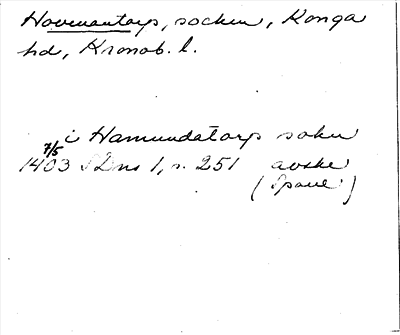 Hovmantorp, socken, Konga
hd, Kronob. l.
i Hamundatorp sokn
7/5
1403 SDns 1, s. 251 avskr
(Spore)